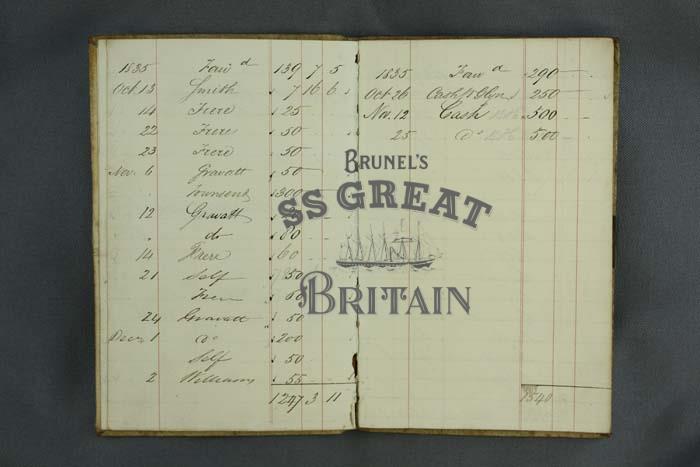 1835 Forwd 139 7 5
Oct 13 Smith 7 16 6
14 Frere 25
22 Frere 50
23 Frere 50
Nov. 6 Gravatt 50
Townsend 300
12 Gravatt
do 80
14 Frere 60
21 Self 50
Frere 60
24 Gravatt 50
Decr 1 Do 200
Self 50
2 Williams 55
1247 3 11
1835 Forwd 290
Oct 26 Cash 250
Nov. 12 Cash 500
25 Do 500
1540
BRUNEL'S
SS GREAT
BRITAIN